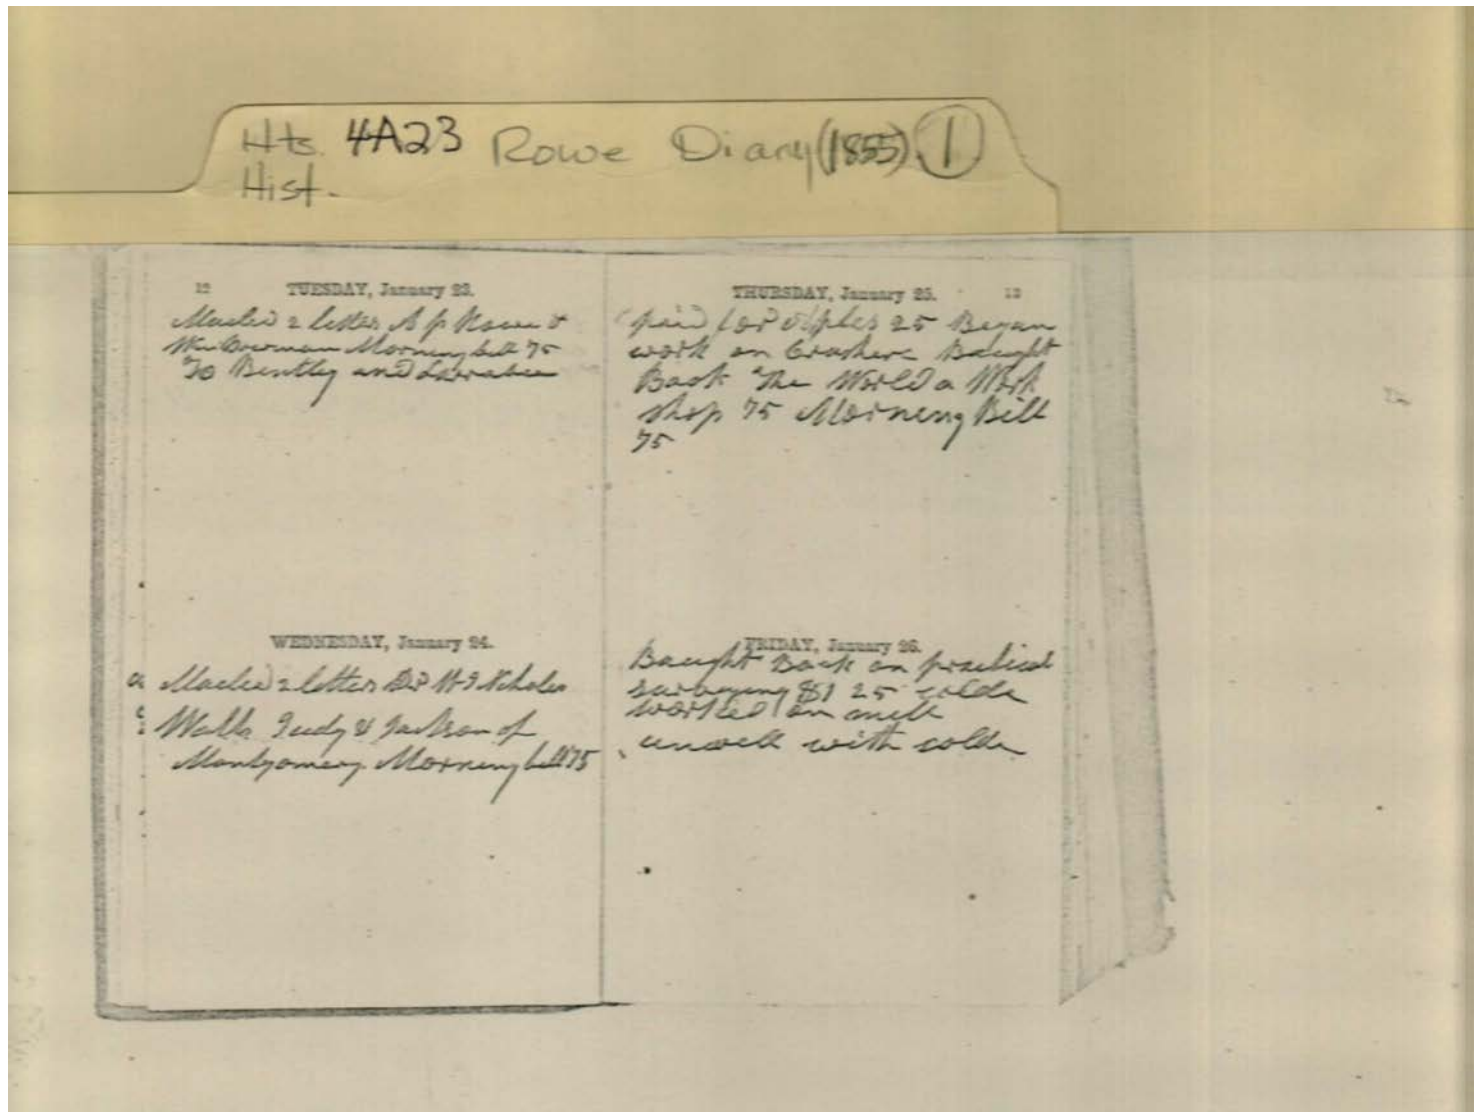 Hts. 4A23 Rowe Diary (1855) 1
Hist.
12 TUESDAY, January 23.
Mailed 2 letters A P Rowe &
Wm Bowman Morning bill 75
To Bentley and Larrabee
WEDNESDAY, January 24.
Mailed 2 letters H Nicholes
Walls Judy & Jackson of
Montgomery Morning bill 75
THURSDAY, January 25. 13
paid for 25 Began
work on Crushers Baught
Book "The World a Work
shop 75 Morning Bill
75
FRIDAY, January 26.
Baught Book on practical
surveying $1 25 colde
worked on mill
unwell with colde